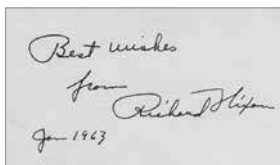 Best wishes
from
Richard Nixon
Jan 1963